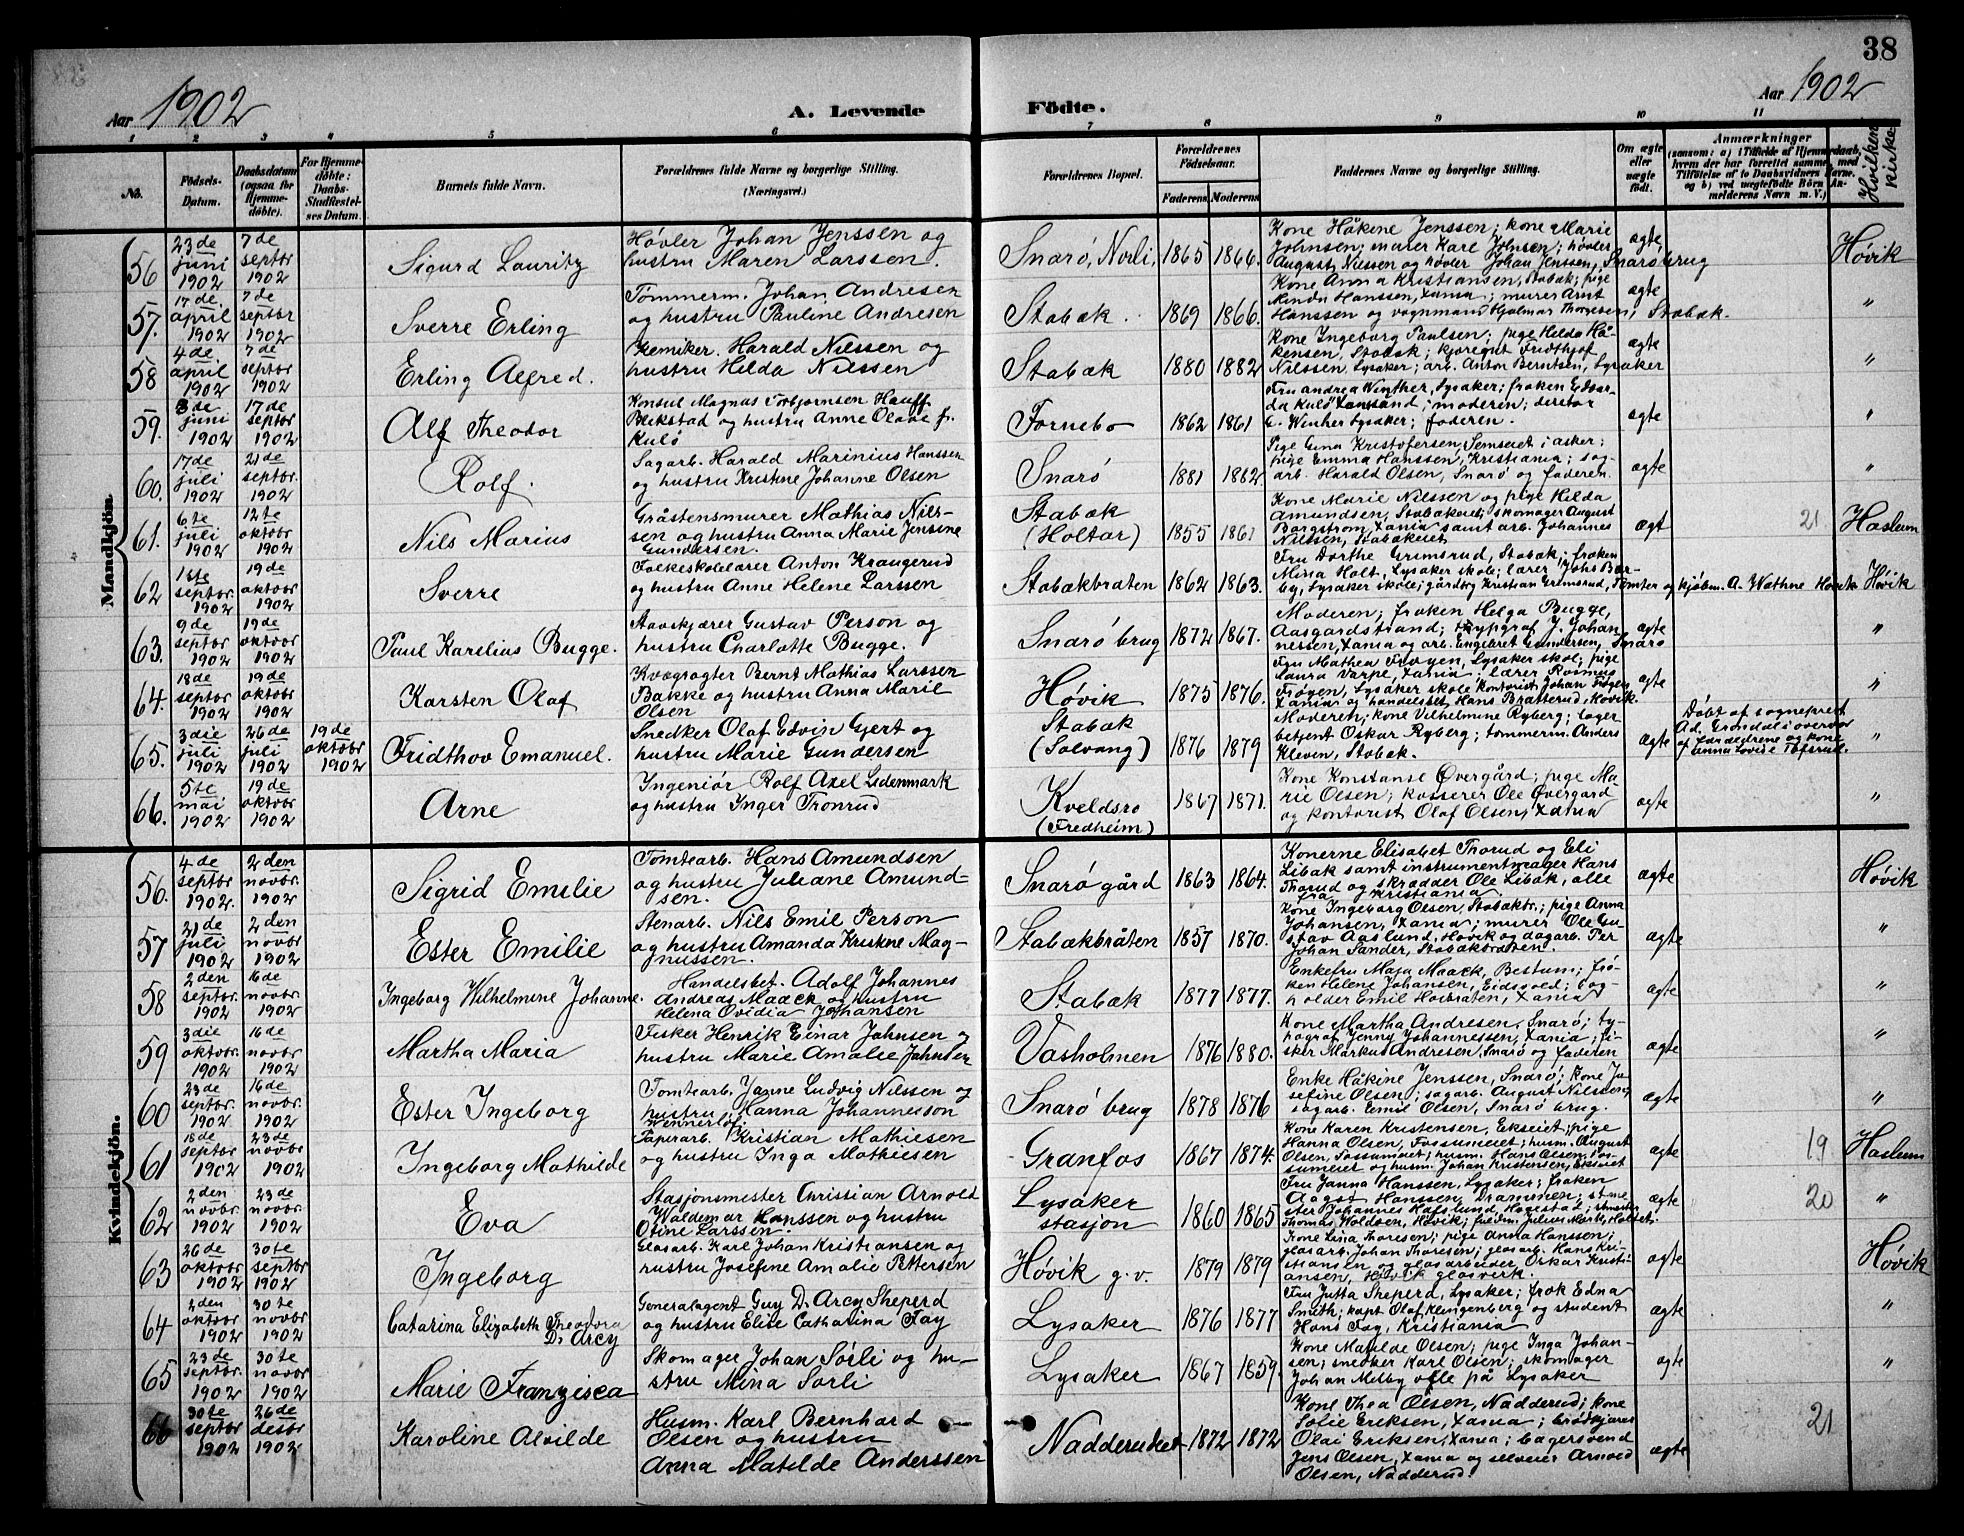 38
Aar 1902
A. Levende Födte.
Aar 1902
1 2 3 4 5 6 7 8 9 10 11
No.
Födsels-Datum.
Daabsdatum (ogsaa for Hjemme-döbte).
For Hjemme-döbte: Daabs-Stadfæstel-ses Datum.
Barnets fulde Navn.
Forældrenes fulde Navne og borgerlige Stilling. (Næringsvei.)
Forældrenes Bopæl.
Forældrenes Födselsaar.
Faderens Moderens
Faddernes Navne og borgerlige Stilling.
Om ægte eller uægte födt.
Anmærkninger
Hvilken kirke
Mandkjön.
56 23de juni 1902 7de septbr 1902 Sigurd Lauritz
Høvler Johan Jenssen og
hustru Maren Larssen.
Snarö, Norli, 1865 1866.
Kone Håkine Jenssen; kone Marie
Johnsen; murer Karl Johnsen; høvler
August Nilssen og høvler Johan Jenssen, Snaröbrug
ægte Høvik
57. 17de april 1902 7de septbr 1902 Sverre Erling
Tømmerm. Johan Andresen
og hustru Pauline Andresen
Stabæk. 1869 1866.
Kone Anna Kristiansen, Stabæk; pige
Hanssen, Xania; murer Arnt
Hanssen og vognmand Hjalmar Thoresen, Stabæk.
ægte "
58 4de april 1902 7de septbr 1902 Erling Alfred.
Kemiker. Harald Nilssen og
hustru Hilda Nilssen
Stabæk 1880 1882
Kone Ingeborg Paulsen; pige Hilda Hå-
kensen, Stabæk; kjøregut Fridthjof
Nilssen, Lysaker; arb. Anton Berntsen, Lysaker
ægte "
59. 3de juni 1902 17de septbr 1902 Alf Theodor
Konsul Magnus Torbjørnsen Hauff
Bekstad og hustru Anne Olave f.
Kulö
Fornebo 1862 1861
Fru Andrea Winther, Lysaker; frøken Edvar-
da Kulö Xansand; moderen; derektør
C. Winther Lysaker; faderen.
ægte "
60. 17de juli 1902 21de septbr. 1902 Rolf.
Sagarb. Harald Marinius Hanssen
og hustru Kristine Johanne Olsen
Snarö 1881 1882
Pige Gina Kristofersen, Semseiet i Asker;
pige Emma Hanssen, Kristiania; sag-
arb. Harald Olsen, Snarö og faderen.
ægte "
61. 6te juli 1902 12te oktobr 1902 Nils Marius
Gråstensmurer Mathias Nils-
sen og hustru Anna Marie Jenssine
Gundersen.
Stabæk (Holtar) 1855 1861
Kone Marie Nilssen og pige Hilda
Amundsen, Stabækeiet; skomager August
Borgstrøm, Xania samt arb. Johannes
Nilssen, Stabækeiet
ægt 21 Haslum
62 1ste septbr. 1902 19de oktobr 1902 Sverre
Folkeskolelærer Anton Kraugerud
og hustru Anne Helene Larssen
Stabækbraten 1862 1863.
Fru Dorthe Grimsrud, Stabæk; frøken
Mina Holt, Lysaker skole; lærer Johs Bar-
by, Lysaker skole; gårdbrg Kristian Grimsrud, Tomter og kjøbm. A. Wathne Høvik
Høvik
63. 9de septbr 1902 19de oktobr 1902 Paul Karelius Bugge.
Stavskjærer Gustav Person og
hustru Charlotte Bugge.
Snarö brug 1872 1867.
Moderen; frøken Helga Bugge,
Aasgardstrand; typgraf J. Johan
nessen, Xania og arb. Engebret Gundersen, Snarö
ægte "
64. 18de septbr 1902 19de oktobr 1902 Karsten Olaf
Kvægrøgter Bernt Mathias Larssen
Bakke og hustru Anna Marie
Olsen
Høvik 1875 1876.
Fru Mathea Frøyen, Lysaker skol; pige
Laura Varpe, Xania; lærer Rasmus
Frøyen, Lysaker skole kontorist Johan Frøyen
Xania og handelsbet Hans Bratterud, Høvik.
ægte "
65. 3die juli 1902 26de juli 1902 19de oktobr 1902 Fridthov Emanuel.
Snedker Olaf Edvin Gjert og
hustru Marie Gundersen
Stabæk (Solvang) 1876 1879
Moderen; kone Vilhelmine Ryberg; lager
betjent Oskar Ryberg; tømmerm. Anders
Kleven, Stabæk.
ægte
Døbt af sogneprest
Ad. Grøndal i overvær
af forældrene og kone
Anna Lovise Tofsrud.
"
66. 5te mai 1902 19de oktobr 1902 Arne
Ingeniør Rolf Axel Lidenmark
og hustru Inger Tronrud
Kveldsro (Fredheim) 1867 1871.
Kone Konstanse Øvergård; pige Ma-
rie Olsen; kasserer Ole Øvergård
og kontorist Olaf Olsen, Xania
ægte "
Kvindekjön.
56. 4de septbr 1902. 2den novbr. 1902 Sigrid Emilie
Tomtearb. Hans Amundsen
og hustru Juliane Amund-
sen.
Snarö gård 1863 1864.
Konerne Elisabet Thorud og Eli
Libak samt instrumentmager Hans
Thorud og skrædder Ole Libak, alle
fra Kristiania
ægte Høvik
57 21de juli 1902 2den novbr 1902 Ester Emilie
Stenarb. Nils Emil Person
og hustru Amanda Kristine Mag-
nussen.
Stabækbråten 1857 1870.
Kone Ingeborg Olsen, Stabækbr.; pige Anna
Johansen, Xania; murer Ole Gu-
stav Aaslund, Høvik og dagarb. Per
Johan Sander, Stabækbråten.
ægte "
58 2den septbr. 1902 16de novbr. 1902 Ingeborg Wilhelmine Johanne.
Handelsbet. Adolf Johannes
Andreas Maack og hustru
Helena Ovidia Johansen
Stabæk 1877 1877.
Enkefru Maja Maack, Bestum; frø-
ken Helene Johansen, Eidsvold; bog-
holder Emil Holbraten, Xania
ægte "
59 3die oktobr. 1902 16de novbr. 1902 Martha Maria
Fisker Henrik Einar Jahnsen og
hustru Marie Amalie Jahnsen
Vasholmen 1876 1880.
Kone Martha Andresen, Snarö; ty-
pograf Jenny Johannessen, Xania; fi-
sker Markus Andresen, Snarö og faderen
ægte "
60 23de septbr. 1902 16de novbr. 1902 Ester Ingeborg
Tomtearb. Janne Ludvig Nilssen og
hustru Hanna Johannesson
Wennerlöf.
Snarö brug 1878 1876
Enke Håkine Jenssen, Snarö; kone Jo
sefine Olsen; sagarb. August Nilssen,
sagarb. Emil Olsen, Snarö brug.
ægte "
61 18de septbr 1902 23de novbr 1902 Ingeborg Mathilde
Papirarb. Kristian Mathiesen
og hustru Inga Mathiesen
Granfos 1867 1874.
Kone Karen Kristensen, Ekseiet; pige
Hanna Olsen, Fossumeiet; husm. August
Olsen, Fossumeiet; husm. Hans Olsen, Fos-
sumeiet og husm. Johan Kristensen, Ekseiet
ægte 19 Haslum
62 2den novbr 1902 23de novbr 1902 Eva
Stasjonsmester Christian Arnold
Waldemar Hanssen og hustru
Otine Larssen.
Lysaker stasjon 1860 1865
Fru Janna Hanssen, Lysaker; frøken
Aagot Hanssen, Drammen;
ægte 20 "
63 26de oktobr 1902 30te septbr 1902 Ingeborg
Glasarb. Karl Johan Kristiansen og
hustru Josefine Amalie Pettersen
Høvik g.v. 1879 1879
Kone Lina Thoresen; pige Anna Hanssen;
glasarb. Johan Thoresen; glasarb. Hans Kri-
stiansen og glasarbeider Oskar Kristi-
ansen, Høvik glasverk.
ægte Høvik
64 2den oktobr 1902 30te novbr 1902 Catarina Elizabeth Theodora D'Arcy
Generalagent Guy D'Arcy Sheperd
og hustru Elise Catharina Fay
Lysaker 1876 1877
Fru Jutta Sheperd, Lysaker; frøk Edna
Smith; kapt Olaf Klingenberg og student
Hans Fay, Kristiania
ægte "
65 23de septbr. 1902 30te novbr 1902 Marie Franzisca
Skomager Johan Sørli og hu-
stru Mina Sørli
Lysaker 1867 1859.
Kone Matilde Olsen; pige Inga Johan-
sen; snedker Karl Olsen; skomager
Johan Melby alle på Lysaker
ægte "
66 30te septbr 1902 26de desbr 1902 Karoline Alvilde
Husm. Karl Bernhard
Olsen og hustru
Anna Matilde Anderssen
Nadderudeiet 1872 1872
Kone Thea Olsen, Nadderud; kone
Sofie Eriksen, Xania; brødkjører
Olai Eriksen, Xania; bagersvend
Jens Olsen, Xania og selveier Arnold
Olsen, Nadderud.
ægte 21